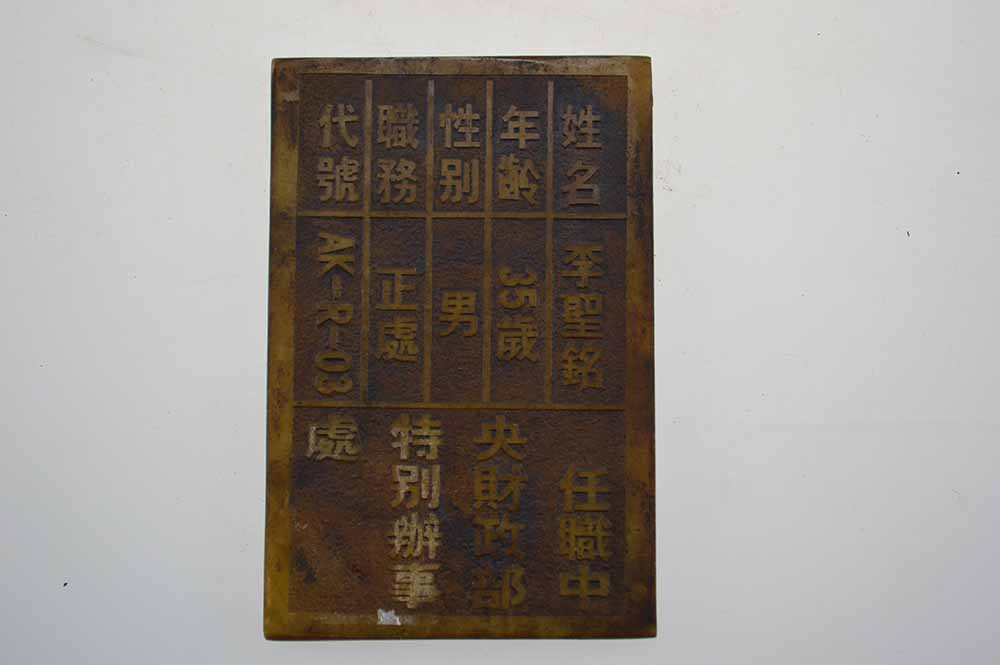 姓名 李聖銘
年齡 35歲
性别 男
職務 正處
代號 AK-R-03
任職中
央財政部
特别辦事
處